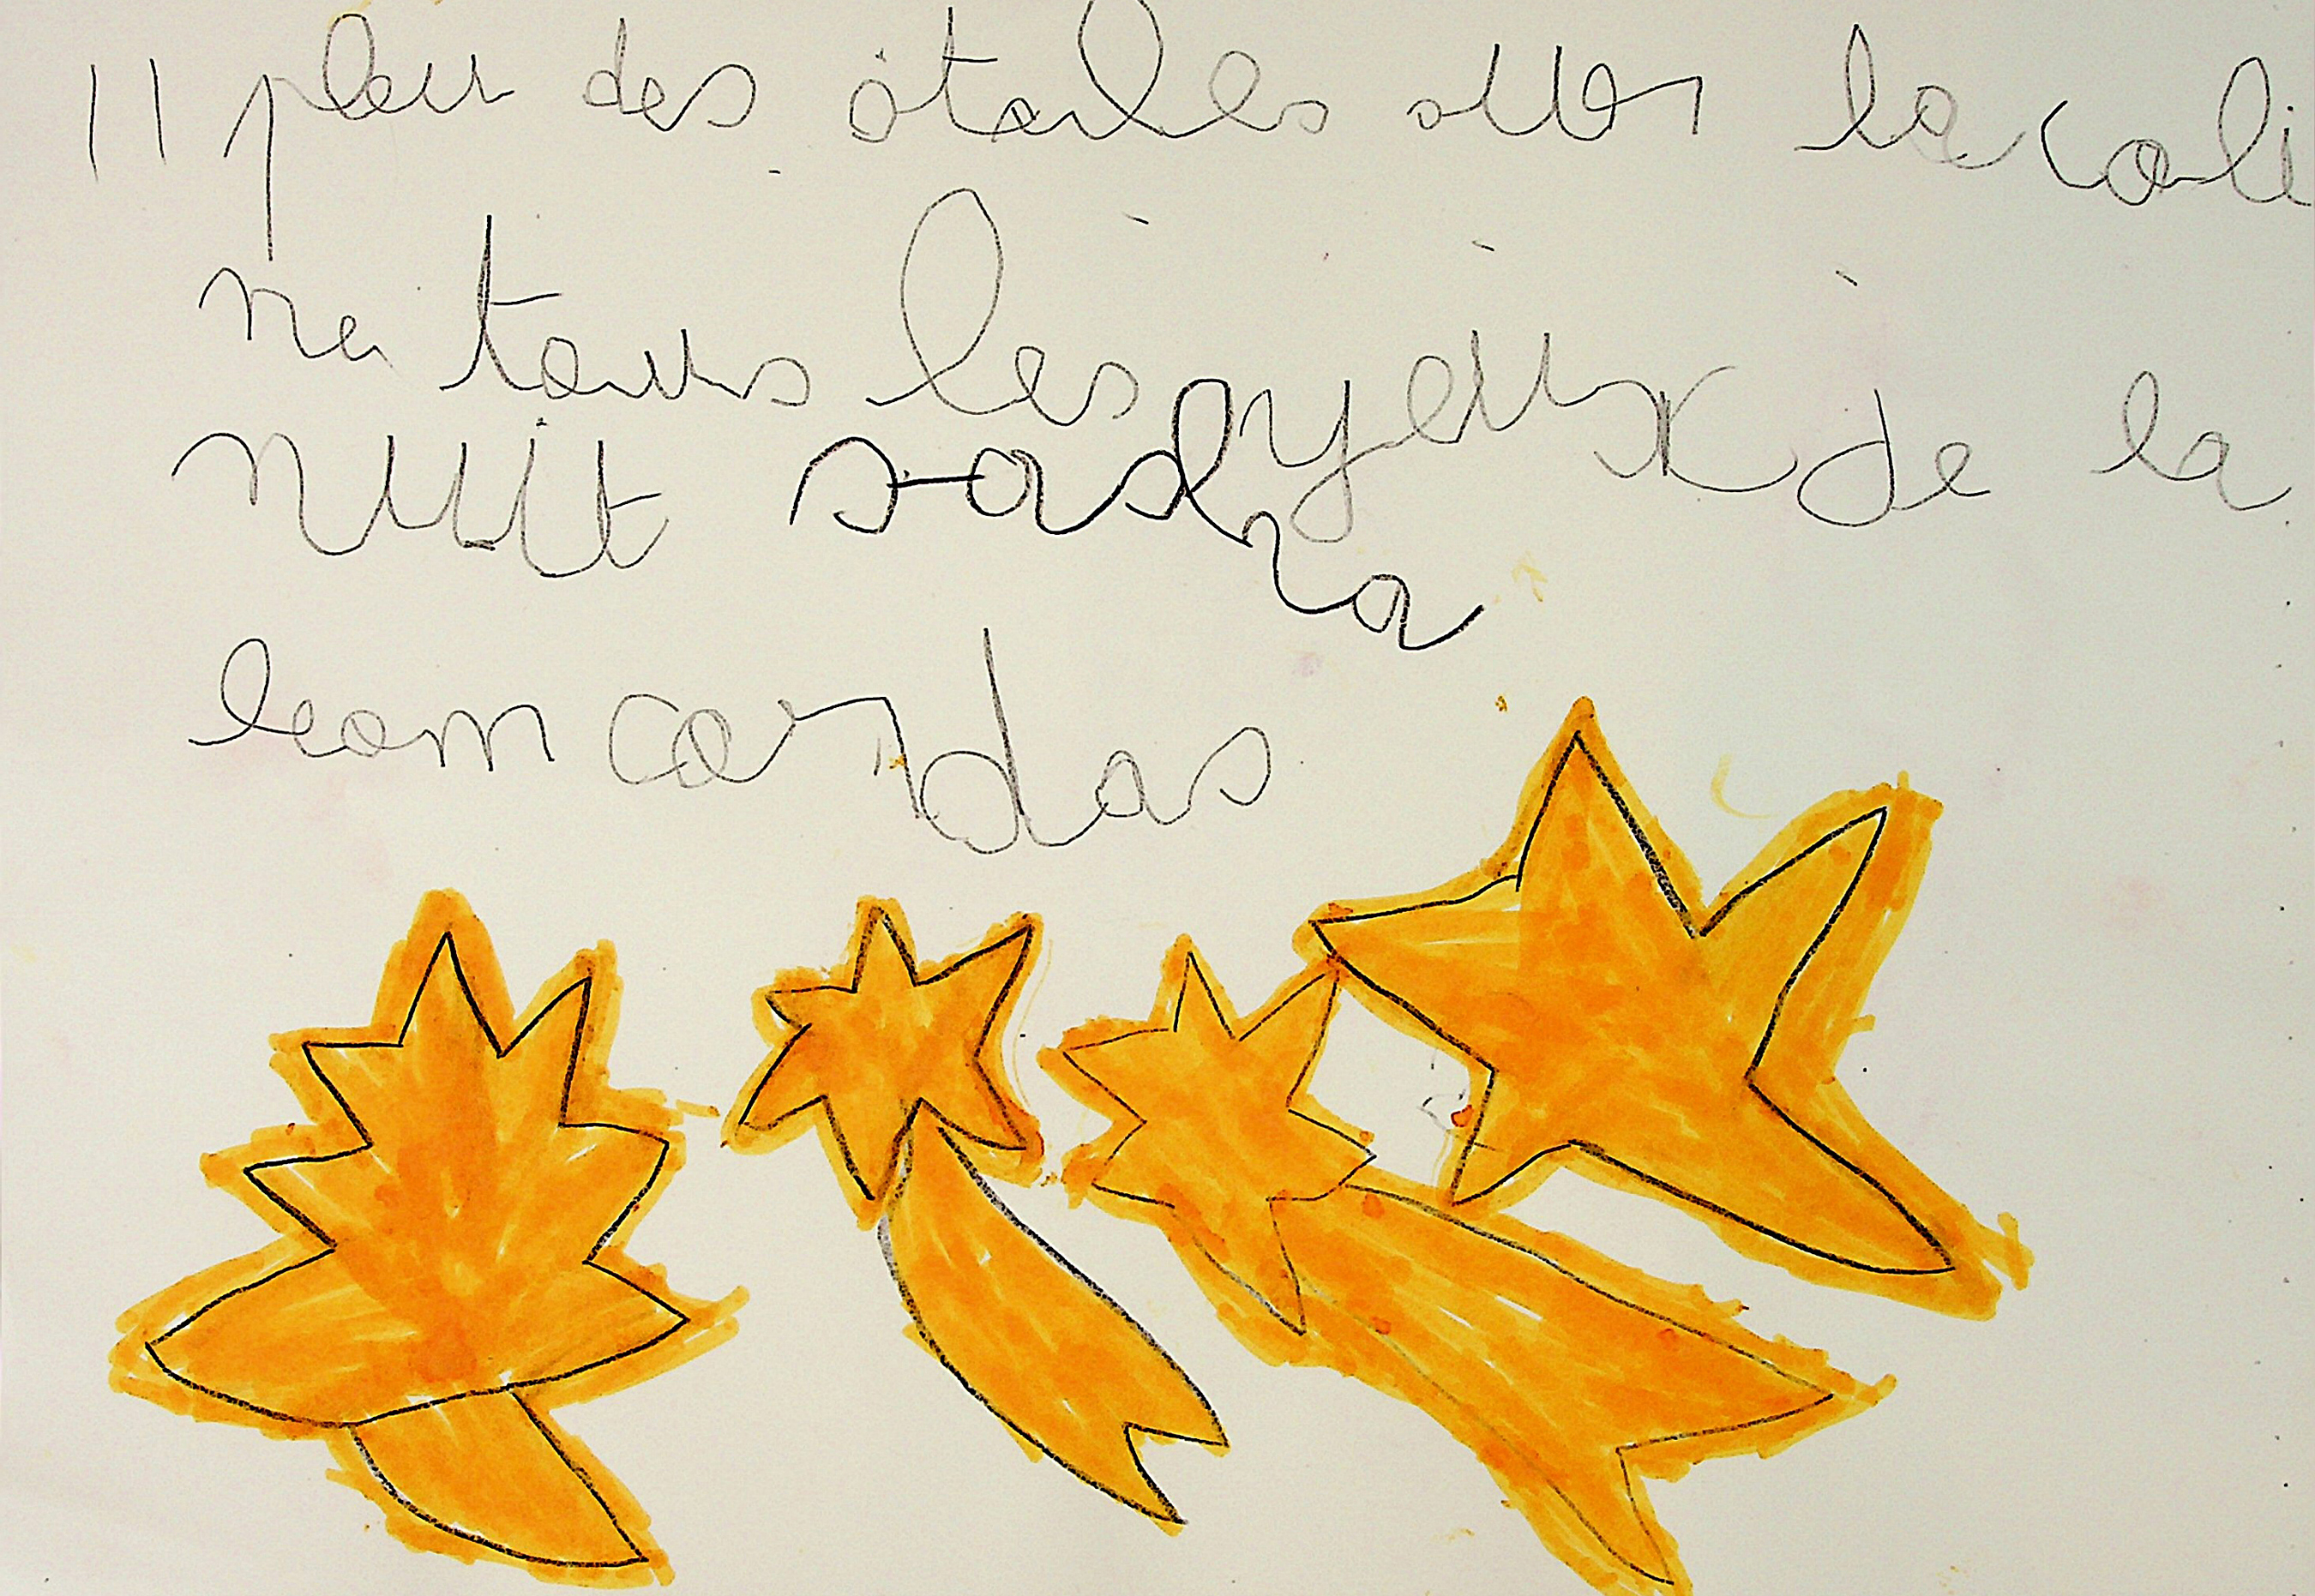 Il pleu des étoiles sur la coli
ne tous les yeux de la
nuit sasha
leom cordas